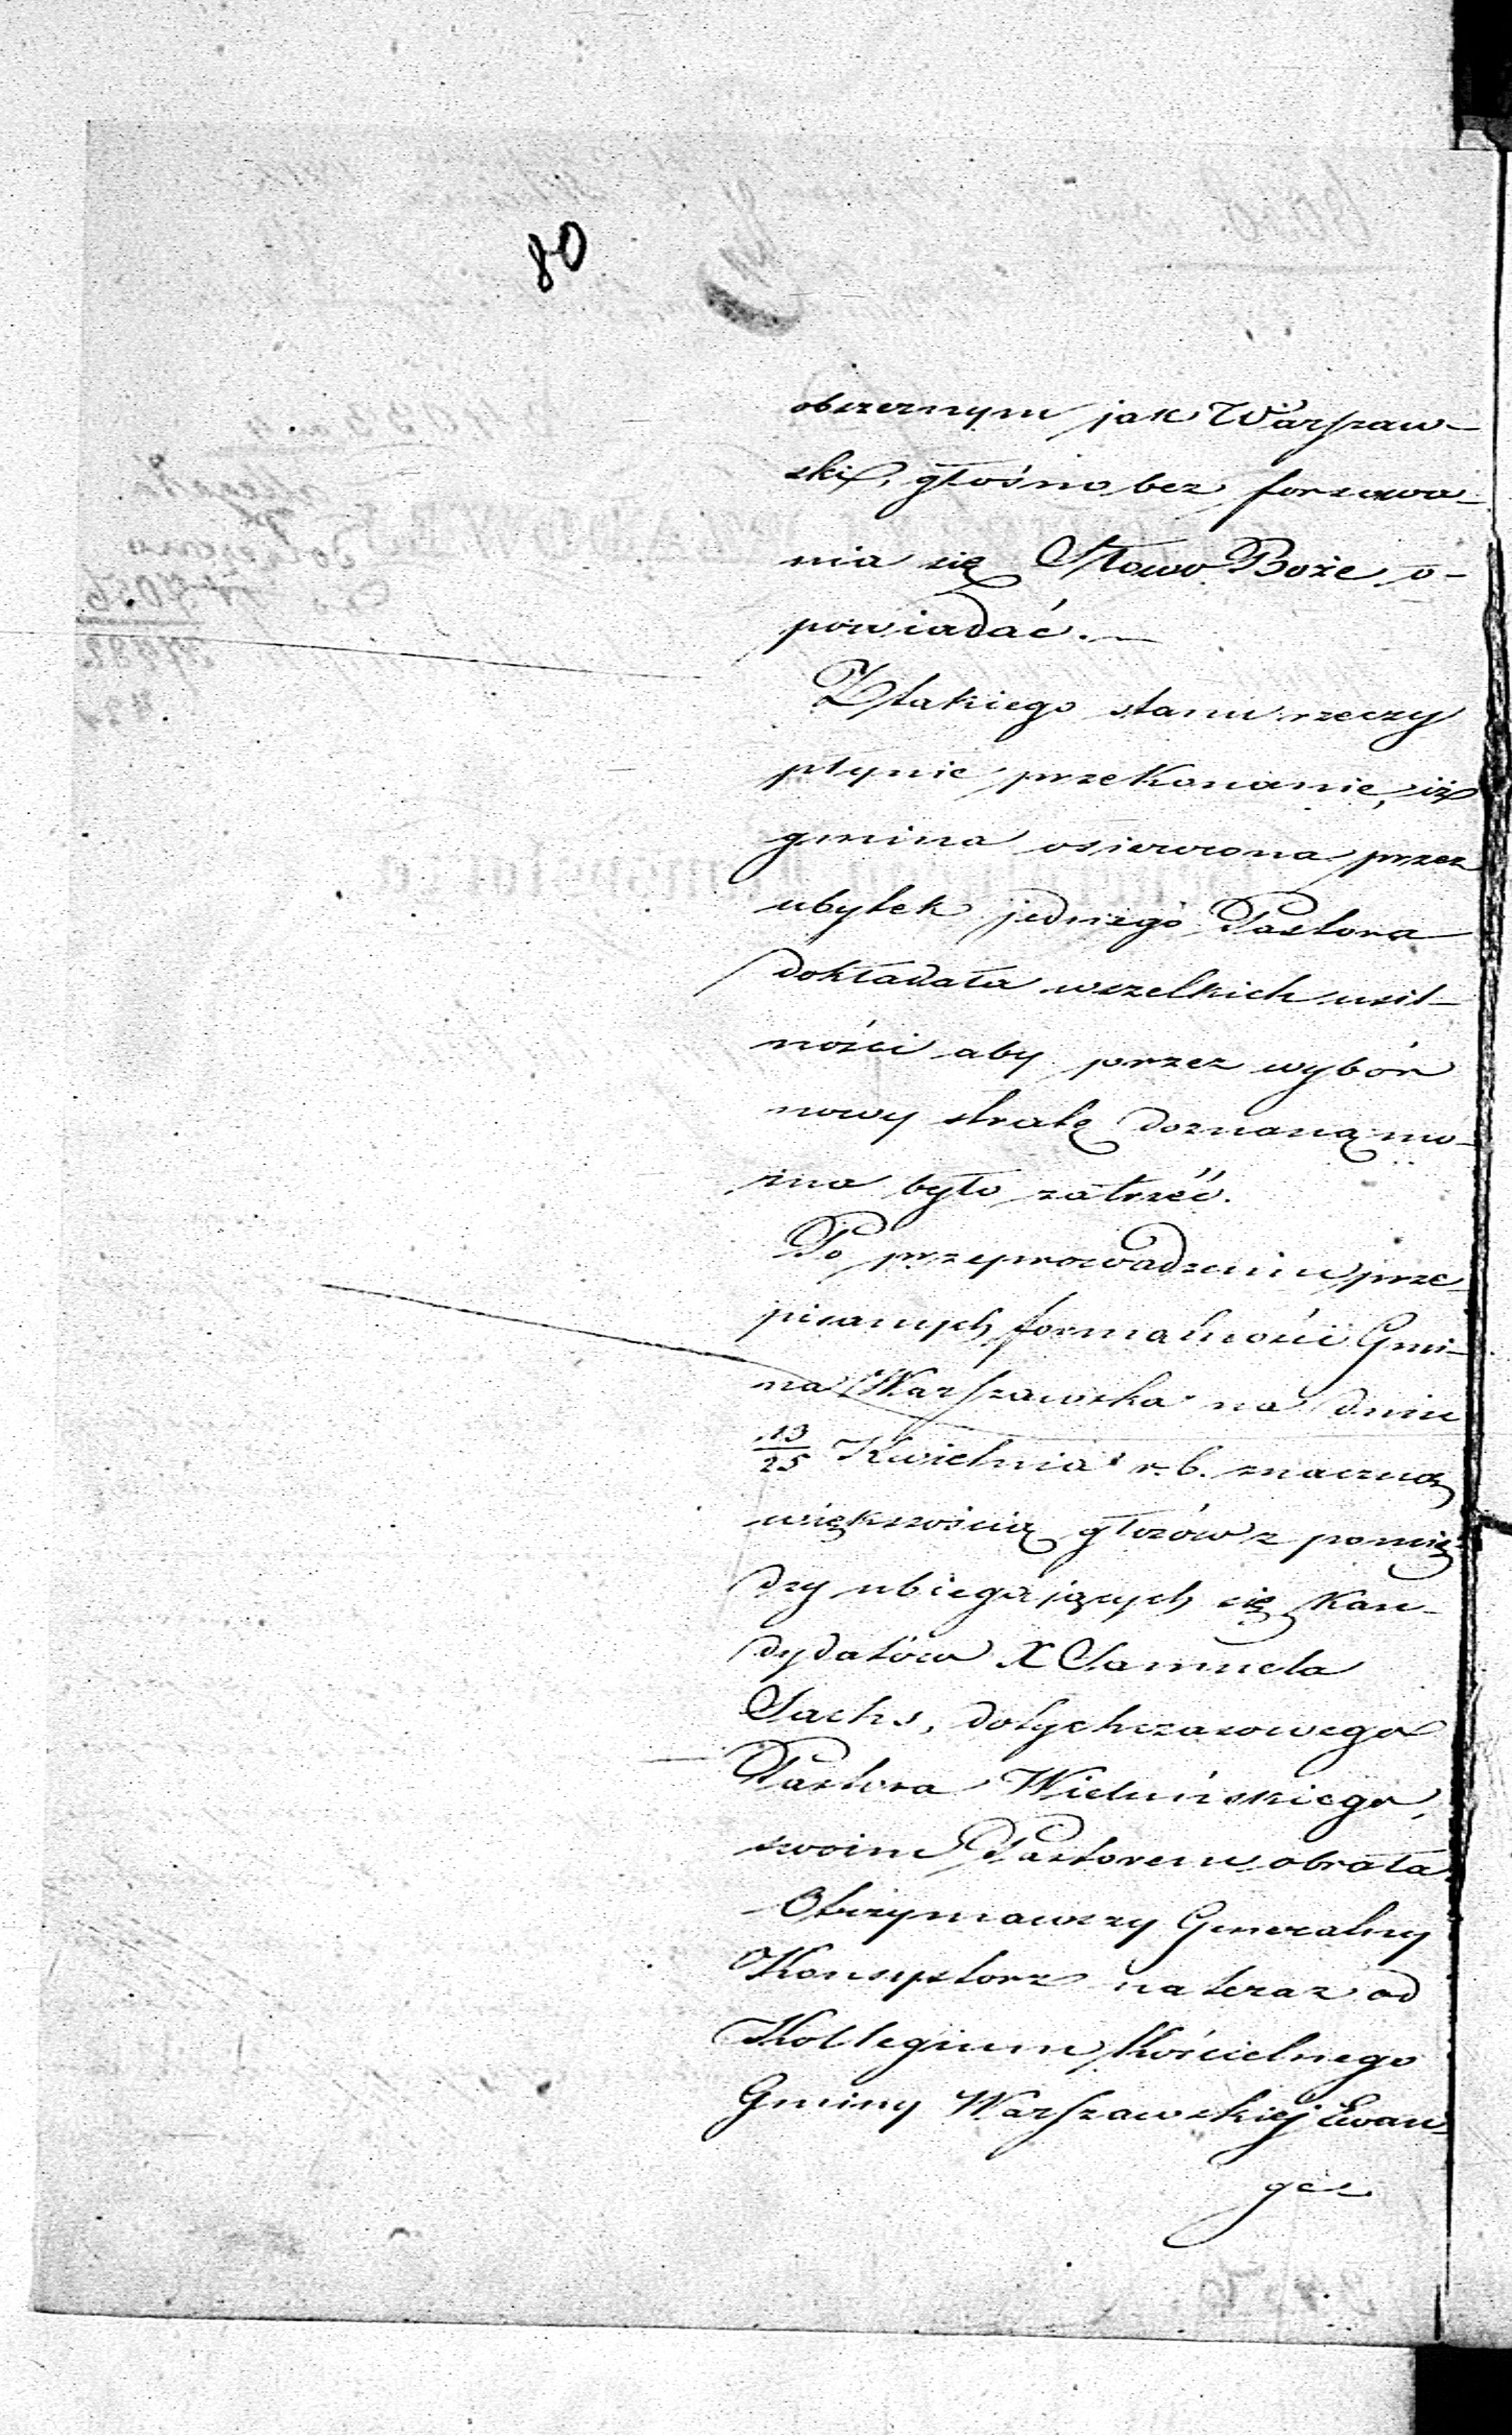 80
obszernym jak Warszaw-
ski, głośno bez forsowa-
nia się Słowo Boże o-
powiadać.—
Z takiego stanu rzeczy
płynie przekonanie, iż
gmina osierocona przez
ubytek jednego Pastora
dokładała wszelkich usil-
ności aby przez wybór
nowy stratę doznaną mo-
żna było zatrzeć.
Po przeprowadzeniu prze-
pisanych formalności Gmi-
na Warszawska na dniu
13/25 Kwietnia r. b. znaczną
większością głosów z pomię-
dzy ubiegających się Kan-
dydatów X Samuela
Sachs, dotychczasowego
Pastora Wieluńskiego,
swoim Pastorem obrała.
Otrzymawszy Generalny
Konsystorz na teraz od
Kollegium Kościelnego
Gminy Warszawskiej Ewan-
ge-